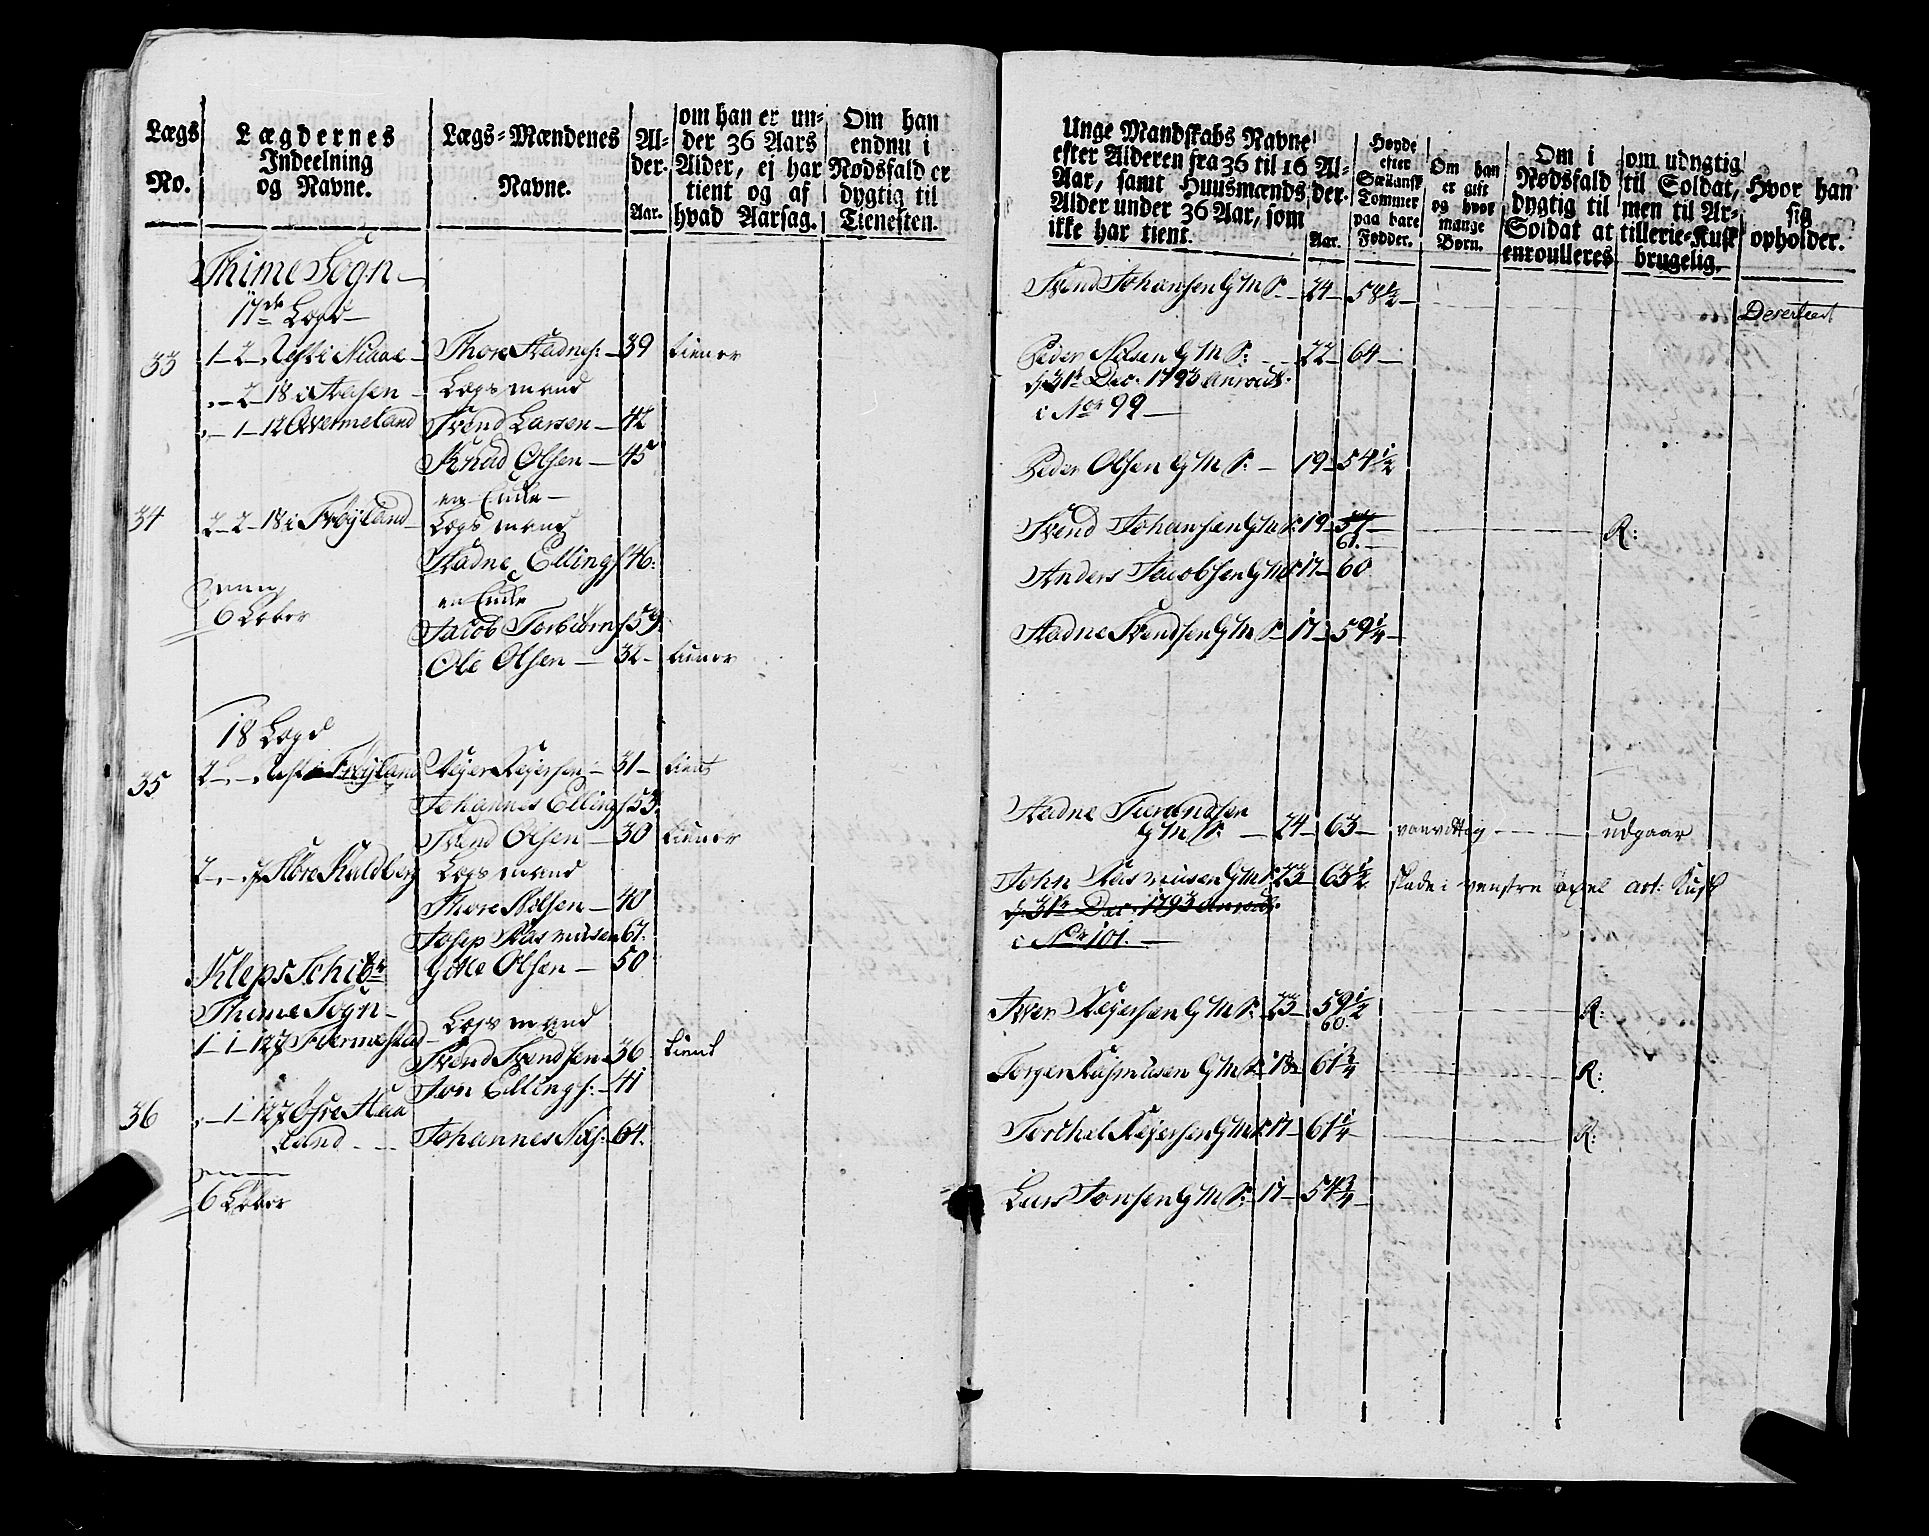 Lægs No.
Lægdernes Indeelning og Navne.
Lægs-Mændenes Navne.
Al-
der.
Aar.
om han er un-
der 36 Aars
Alder, ej har
tient og af
hvad Aarsag.
Om han
endnu i
Nødsfald er
dygtig til
Tienesten.
Thime Sogn
17de Lægd
33
1 - 2
Thore Aadnes: 39 tiener
2 18 i Aasen
Lægsmænd
1 - 12
Svend Larsen 42
Knud Olsen 45
en Enke
34
2 - 2 - 18 i Frøyland
Lægsmænd
Aadne Ellings 46
en Enke
6 Leber
Jacob Torbiørns 59
Ole Olsen 32 tiener
18 Lægd
35
2 - Frøyland
Rejer Rejersen 31 tient
Johannes Ellings 53
Svend Olsen 30 tiener
2 - Nøre Kaldberg
Lægsmænd
Thore Nilsen 40
Josep Rasmusen 67
Kleps Schibr
Gitle Olsen 50
Thime Sogn
Lægsmænd
1 - 1 - 12 Fiermestad
Svend Svendsen 36 tient
Jon Ellings: 41
36
1 - 12 Øfre Haa
land
Johannes Nils: 64
6 Leber
Unge Mandskabs Navne
efter Alderen fra 36 til 16
Aar, samt Huusmænds
Alder under 36 Aar, som
ikke har tient.
Al-
der.
Aar.
Høyde
efter
Siællansk
Tommer
paa bare
Fødder.
Om han
er gift
og hvor
mange
Børn.
Om i
Nødsfald
dygtig til
Soldat at
enroulleres
om udygtig
til Soldat,
men til Ar-
tillerie-Kusk
brugelig.
Hvor han
sig
opholder.
Svend Johansen G M S. 24 58 1/2
Deserteert
Peder Nilsen G M S: 22 64
d: 31te Dec: 1793
i Nor 99
Peder Olsen G M S: 19 54 1/2
Svend Johansen G M S: 19 57 R:
61
Anders Jacobsen G M S 17 60
Aadne Svendsen G M S 17 59 1/4
Aadne Turendsen
G M S: 24 63 vanvittig udgaar
John Rasmusen G M S 23 63 1/2 skade i venstre axel art: Kusk
d: 31te Dec: 1793
i Nor 101.
Iver Rejersen G M S: 23 59 1/2 R:
60
Torger Rasmusen G M S 18 61 3/4 R:
Torchel Rejersen G M S 17 61 1/4 R:
Lars Jonsen G M S: 17 54 3/4